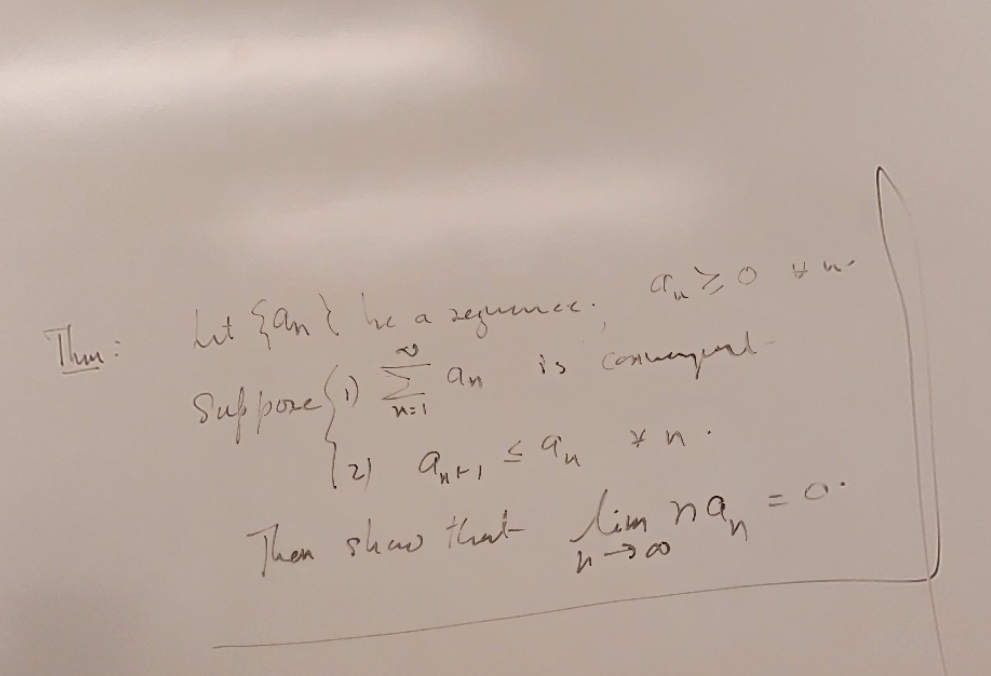 Thm: Let {aₙ} be a sequence. aₙ ≥ 0 ∀ n.
Suppose { 1) ∑_{n=1}^{∞} aₙ is convergent
2) aₙ₊₁ ≤ aₙ ∀ n.
Then show that lim_{n→∞} n aₙ = 0.